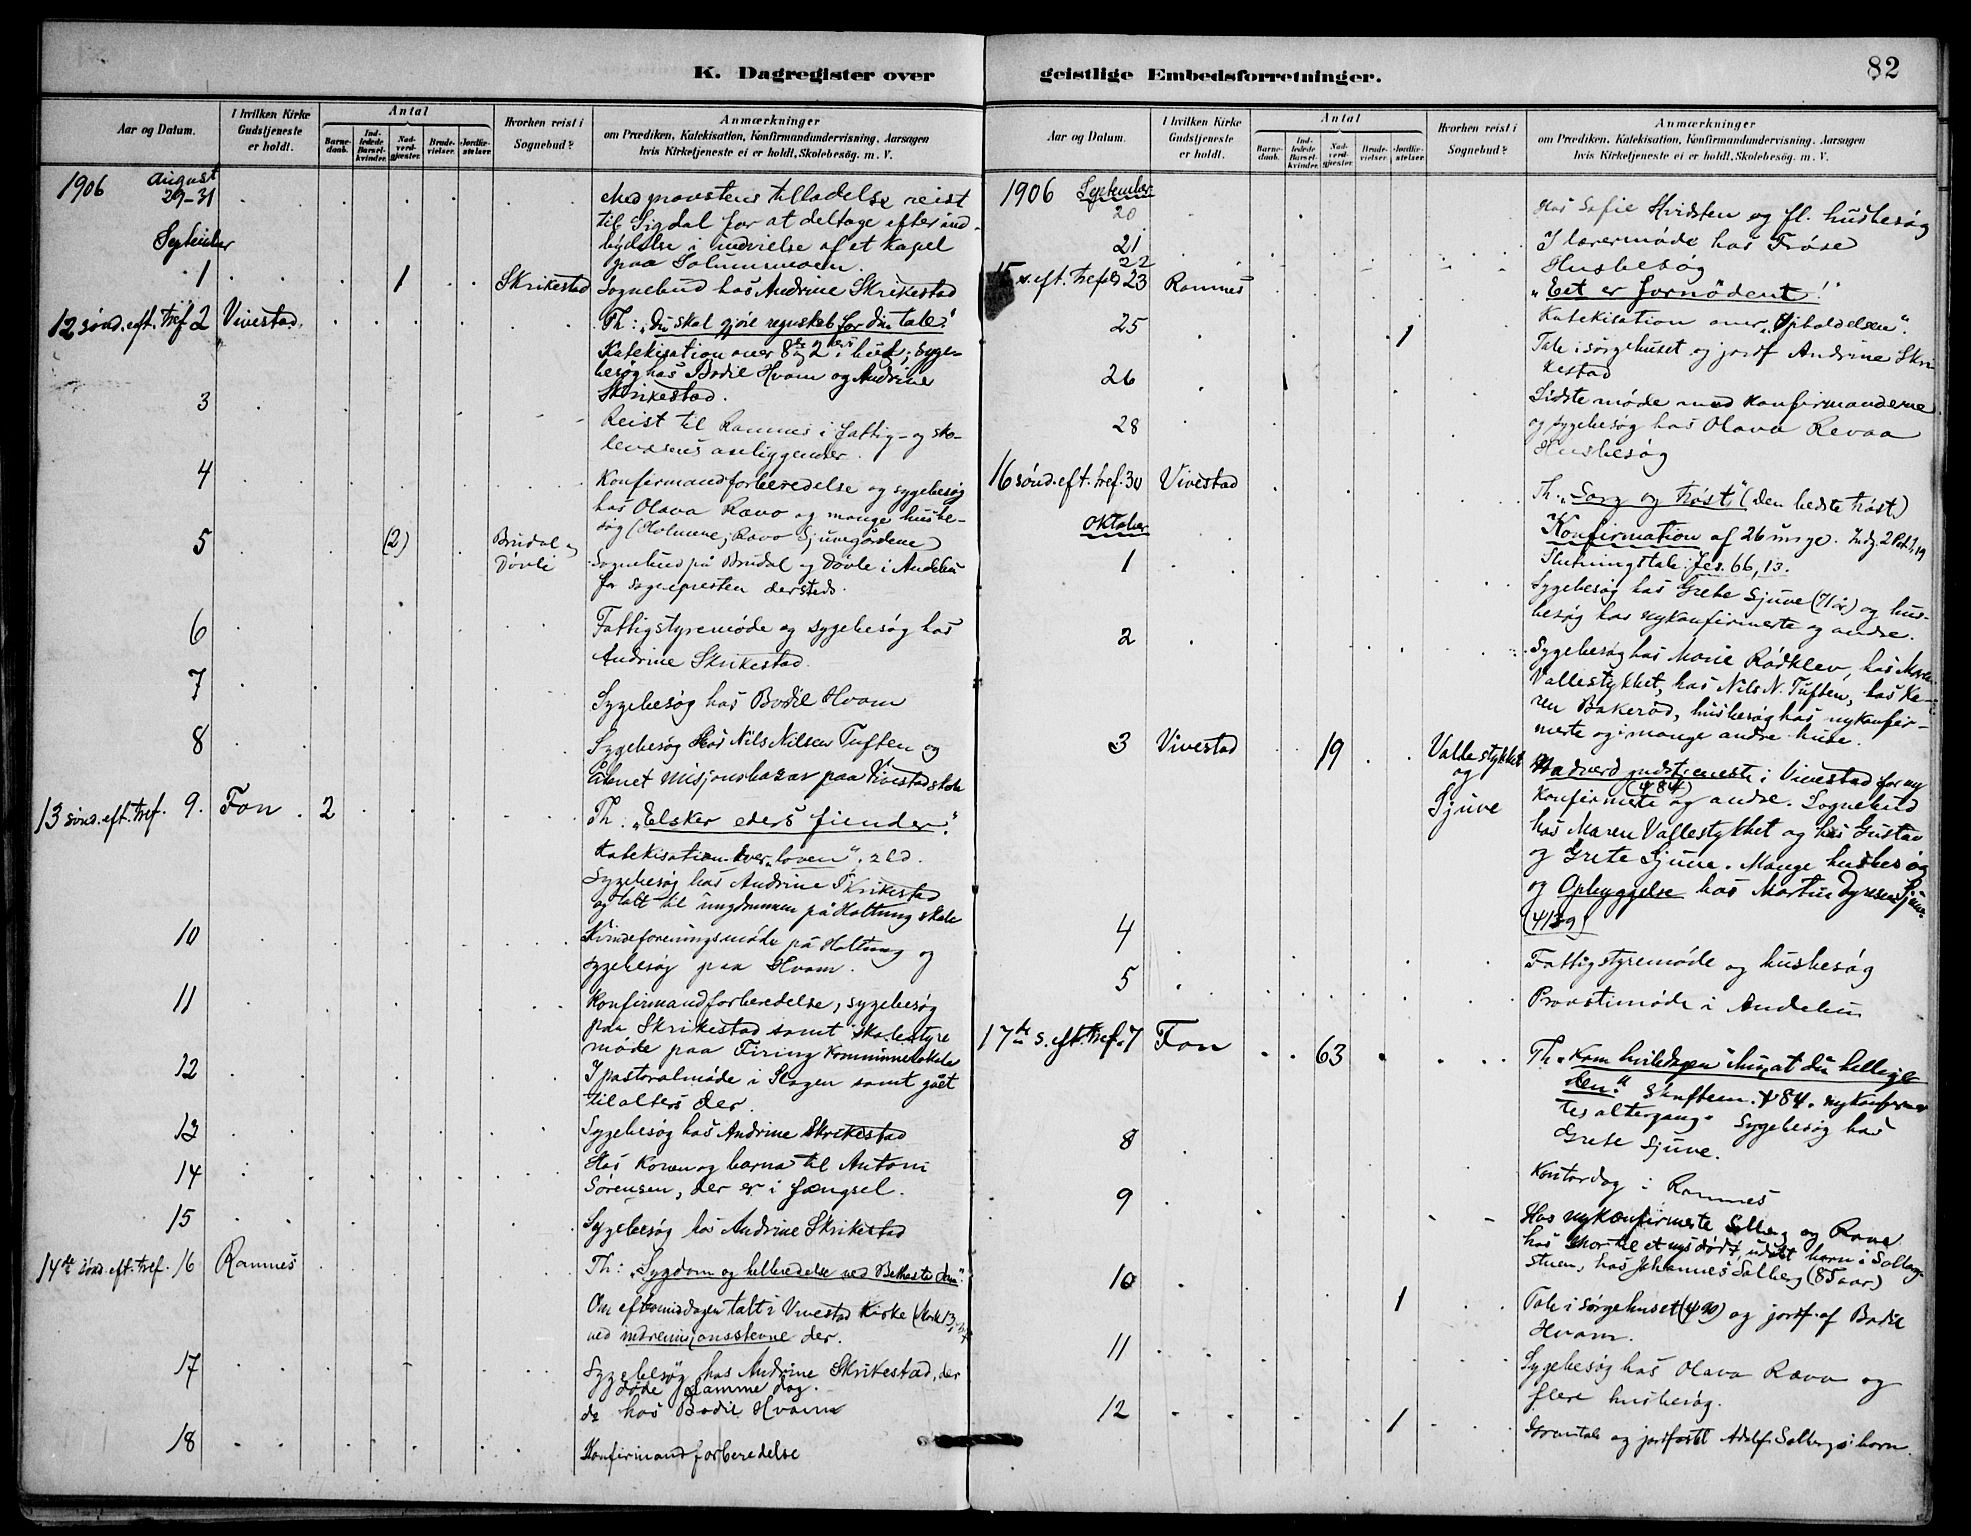 K. Dagregister over
Aar og Datum.
I hvilken Kirke Gudstjeneste er holdt.
Antal
Barnedaab.
Indledede Barselkvinder.
Nadverdgjester.
Brudevielser.
Jordfæstelser.
Hvorhen reist i Sognebud?
Anmærkninger
om Prædiken, Katekisation, Konfirmandundervisning, Aarsagen
hvis Kirketjeneste ei er holdt, Skolebesøg. m. V.
1906 August
29-31 Med provstens tilladelse reist
til Sigdal for at deltage efter ind-
bydelse i indvielse af et kapel
paa Solumsmoen.
September
1 1 Skrikestad Sognebud hos Andrine Skrikestad
12 sønd. eft. tref. 2 Vivestad Th: „Du skal gjøre regnskab for din tale."
Katekisation over 8de bud; syge-
besøg hos Bodil Hvam og Andrine
Skrikestad.
3 Reist til Ramnes i fattig- og sko-
levæsens anliggender.
4 Konfirmandforberedelse og sygebesøg
hos Olava Ravo og mange husbe-
søg (Holmene, Ravo Sjuvegårdene)
5 (2) Brudal og Døvle Sognebud på Brudal og Døvle i Andebu
for sognepresten dersteds.
6 Fattigstyremøde og sygebesøg hos
Andrine Skrikestad.
7 Sygebesøg hos Bodil Hvam
8 Sygebesøg hos Nils Nilsen Tuften og
åbnet misjonsbazar paa Vivestad skole
13 sønd. eft. tref. 9. Fon 2 Th: „Elsker eders fiender."
Katekisation over „loven".
Sygebesøg hos Andrine Skrikestad
og talt til ungdommen på Haltung skole
10 Kvindeforeningsmøde på Haltung og
sygebesøg paa Hvam.
11 Konfirmandforberedelse, sygebesøg
paa Skrikestad samt skolestyre
møde paa Firing kommunelokale
12 I pastoralmøde i Slagen samt gået
til alters der.
13 Sygebesøg hos Andrine Skrikestad
14 Hos konen og barna til Antoni
Sørensen, der er i fængsel.
15 Sygebesøg hos Andrine Skrikestad
14de sønd. eft. tref. 16 Ramnes Th: „Sygdom og helbredelse ved Bethesda dam"
Om eftermiddagen talt i Vivestad Kirke
ved indremisjonsstevne der.
17 Sygebesøg hos Andrine Skrikestad, der
døde samme dag.
do hos Bodil Hvam
18 Konfirmandforberedelse
geistlige Embedsforretninger. 82
Aar og Datum.
I hvilken Kirke Gudstjeneste er holdt.
Antal
Barnedaab.
Indledede Barselkvinder.
Nadverdgjester.
Brudevielser.
Jordfæstelser.
Hvorhen reist i Sognebud?
Anmærkninger
om Prædiken, Katekisation, Konfirmandundervisning, Aarsagen
hvis Kirketjeneste ei er holdt, Skolebesøg. m. V.
1906 September
20 Hos Sofie Hvidsten og fl. husbesøg
21 I lærermøde hos Frøse
22 Husbesøg
15 s. eft. tref. 23 Ramnes „Eet er fornødent!"
Katekisation over „Opholdelsen".
25 1 Tale i sørgehuset og jordf. Andrine Skri-
kestad
26 Sidste møde med konfirmanderne
og sygebesøg hos Olava Revaa
28 Husbesøg
16 sønd. eft. tref. 30 Vivestad Th. „Sorg og trøst" (Den bedste trøst)
Konfirmation af 26 unge. Indg. 2 Pet. 1,19
Slutningstale: Jes. 66, 13.
Oktober
1 Sygebesøg hos Grete Sjuve (71 år) og hus-
besøg hos nykonfirmerte og andre.
2 Sygebesøg hos Marie Rødklev, hos Maren
Vallestykket, hos Nils N. Tuften, hos Ka-
ren Bakerød, husbesøg hos nykonfir-
merte og i mange andre huse.
3 Vivestad 19 Vallestykket og Sjuve Nadverdgudstjeneste i Vivestad for ny
konfirmerte og andre. (ψ 84) Sognebud
hos Maren Vallestykket og hos Gustav
og Grete Sjuve. Mange husbesøg
og Opbyggelse hos Martin Dyresen Sjuve.
(ψ 139)
4 Fattigstyremøde og husbesøg
5 Provstimøde i Andebu
17de s. eft. tref. 7 Fon 63 Th. „Kom hviledagen ihu, at du helliger
den." Skriftem. ψ 84. nykonfirmer
tes altergang. Sygebesøg hos
Grete Sjuve.
8 Kontordag i Ramnes
9 Hos nykonfirmerte Solberg og Rane
hos mor til et nys dødt, udøbt barn i Solberg-
stuen, hos Johannes Solberg (85 aar)
10 1 Tale i sørgehuset (ψ 90) og jordf. af Bodil
Hvam.
11 Sygebesøg hos Olava Ravo og
flere husbesøg.
12 1 Gravtale og jordfæstet Adolf Solbergs barn.